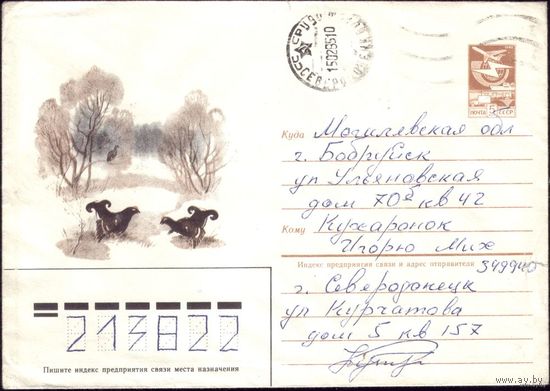 15029510
ПОЧТА 5 СССР
Куда Могилевская обл
г. Бобруйск
ул Ульяновская
дом 70б кв 42
Кому Кухаронок
Игорю Мих
Индекс предприятия связи и адрес отправителя 349940
г. Северодонецк
ул Курчатова
дом 5 кв 157
213822
Пишите индекс предприятия связи места назначения
www.ay.by